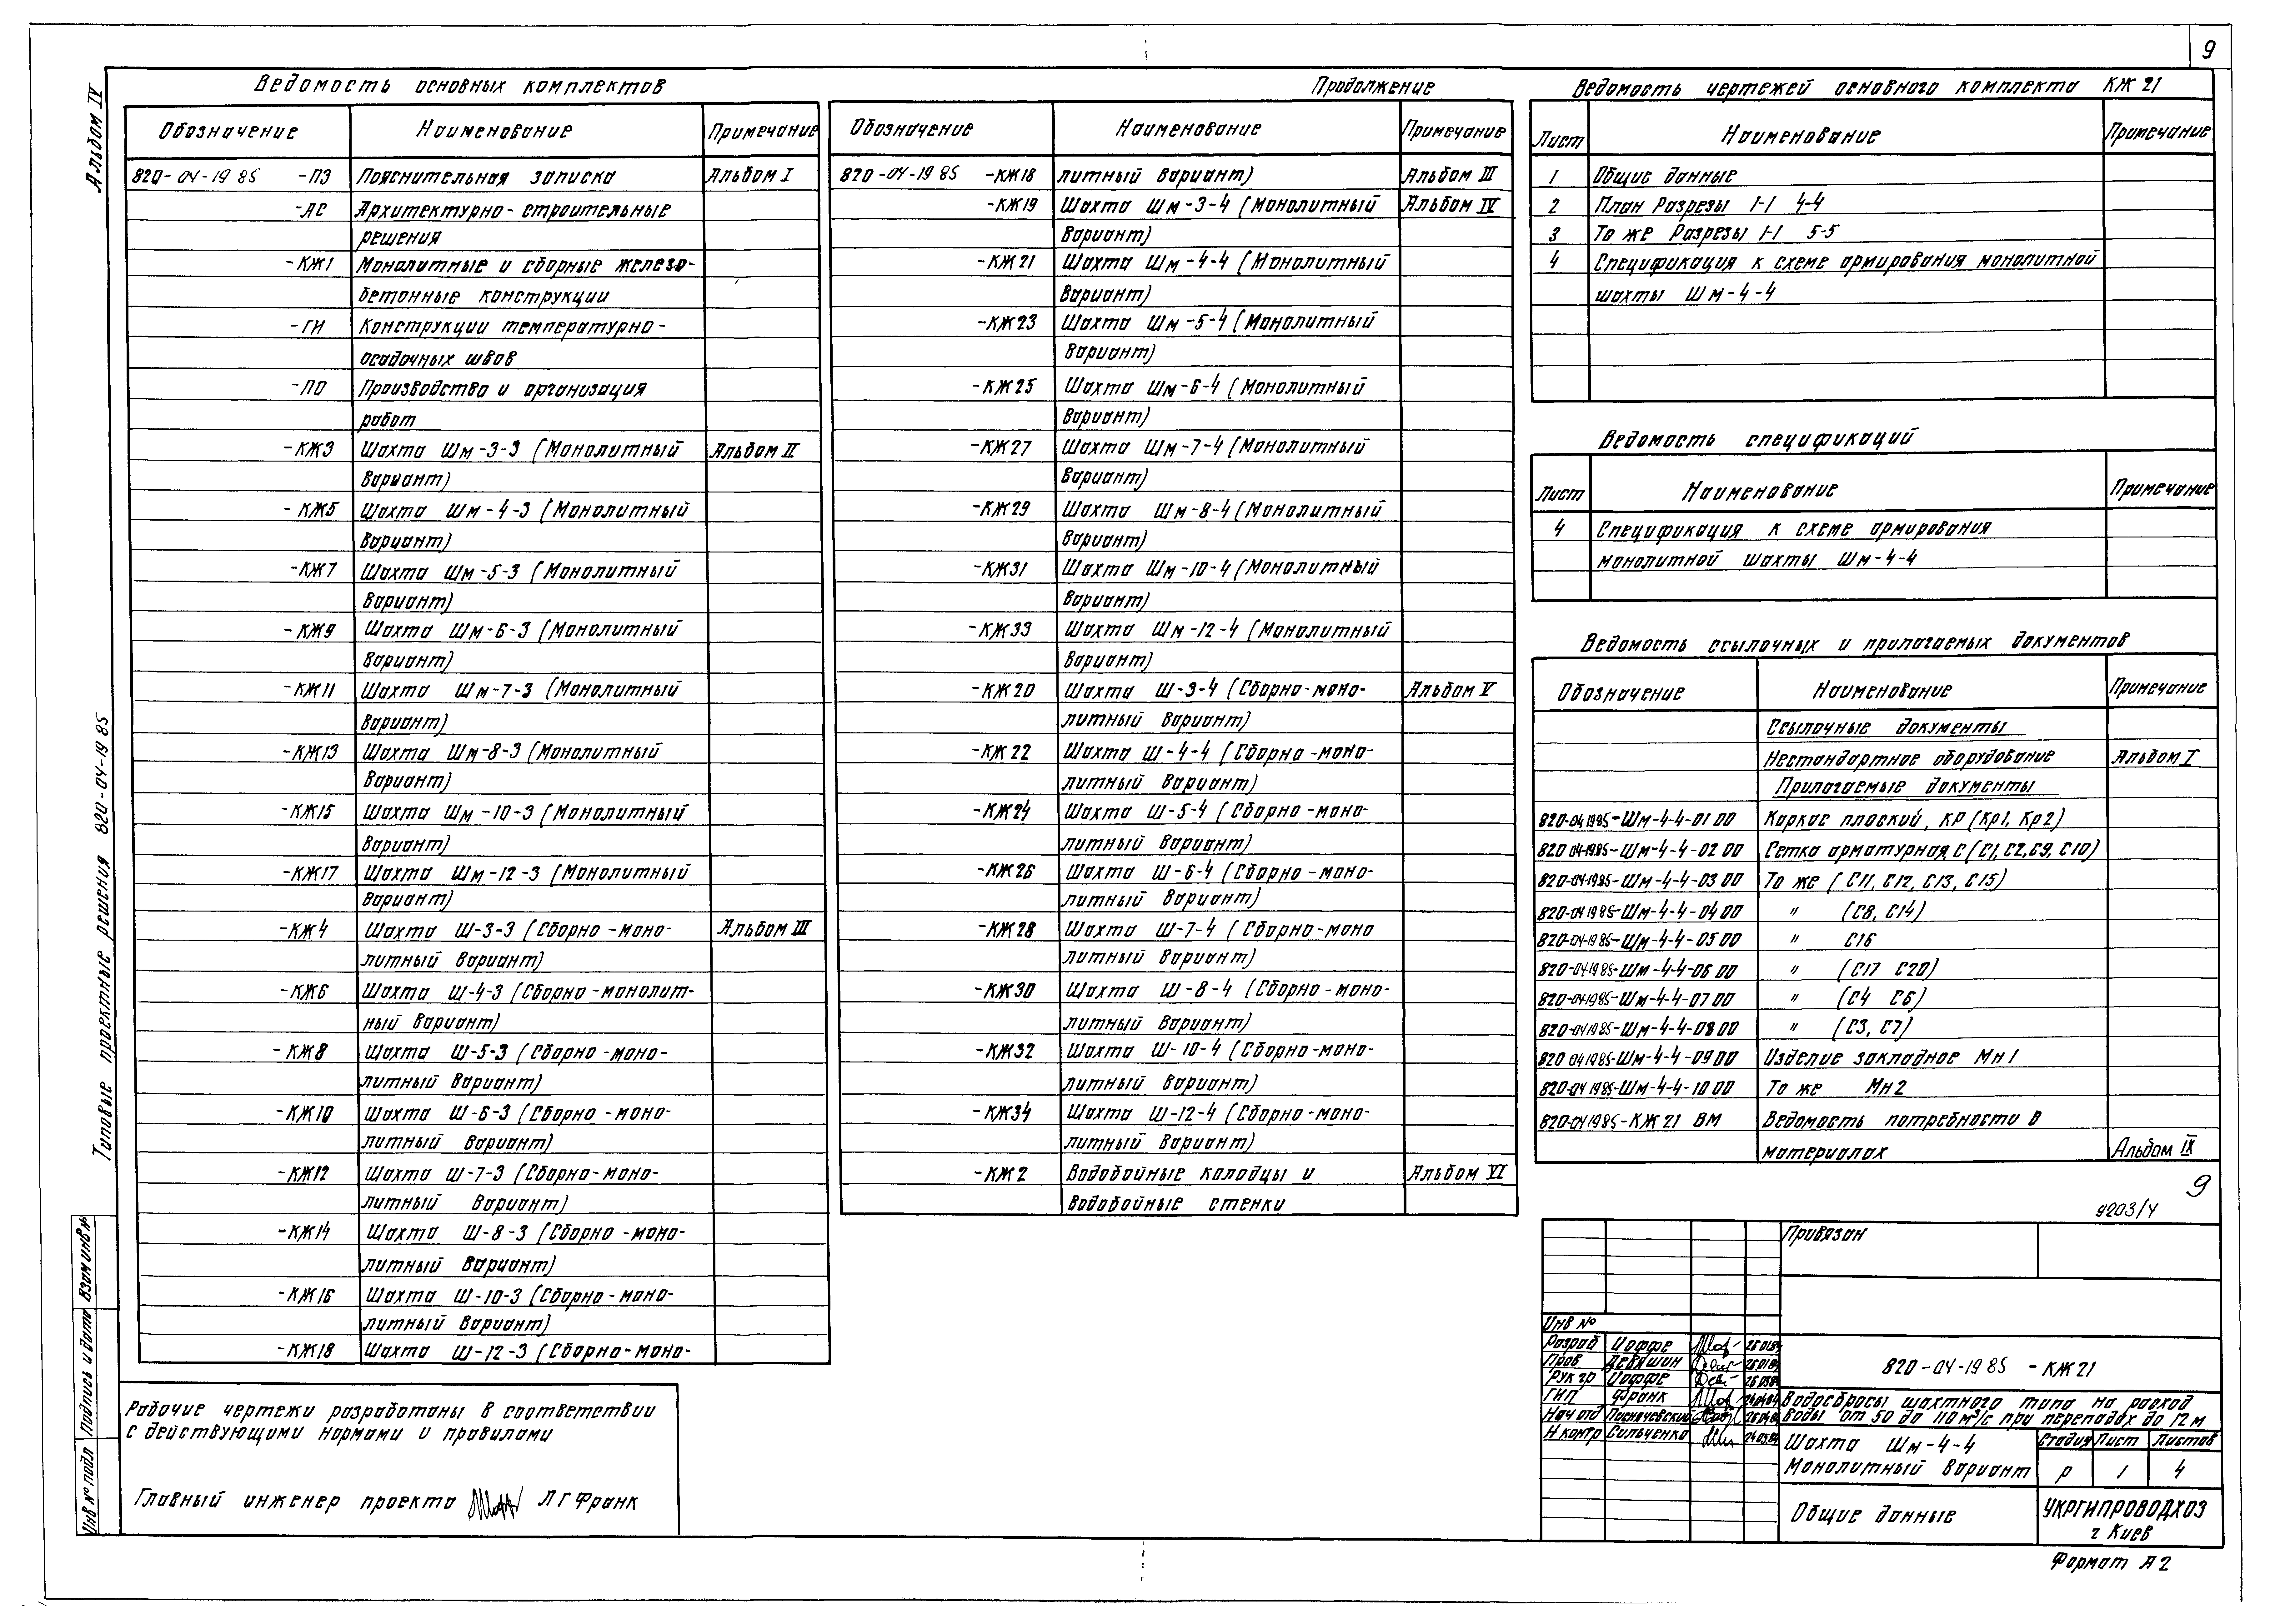 9
Альбом IV
Типовые проектные решения 820-04-19 85
Ведомость основных комплектов
Обозначение Наименование Примечание
820-04-19 85 -ПЗ Пояснительная записка Альбом I
-АС Архитектурно-строительные
решения
-КЖ1 Монолитные и сборные железо-
бетонные конструкции
-ГИ Конструкции температурно-
осадочных швов
-ПО Производства и организация
работ
-КЖ3 Шахта Шм-3-3 (Монолитный Альбом II
вариант)
-КЖ5 Шахта Шм-4-3 (Монолитный
вариант)
-КЖ7 Шахта Шм-5-3 (Монолитный
вариант)
-КЖ9 Шахта Шм-6-3 (Монолитный
вариант)
-КЖ11 Шахта Шм-7-3 (Монолитный
вариант)
-КЖ13 Шахта Шм-8-3 (Монолитный
вариант)
-КЖ15 Шахта Шм-10-3 (Монолитный
вариант)
-КЖ17 Шахта Шм-12-3 (Монолитный
вариант)
-КЖ4 Шахта Ш-3-3 (Сборно-моно- Альбом III
литный вариант)
-КЖ6 Шахта Ш-4-3 (Сборно-монолит-
ный вариант)
-КЖ8 Шахта Ш-5-3 (Сборно-моно-
литный вариант)
-КЖ10 Шахта Ш-6-3 (Сборно-моно-
литный вариант)
-КЖ12 Шахта Ш-7-3 (Сборно-моно-
литный вариант)
-КЖ14 Шахта Ш-8-3 (Сборно-моно-
литный вариант)
-КЖ16 Шахта Ш-10-3 (Сборно-моно-
литный вариант)
-КЖ18 Шахта Ш-12-3 (Сборно-моно-
Продолжение
Обозначение Наименование Примечание
820-04-19 85 -КЖ18 литный вариант) Альбом III
-КЖ19 Шахта Шм-3-4 (Монолитный Альбом IV
вариант)
-КЖ21 Шахта Шм-4-4 (Монолитный
вариант)
-КЖ23 Шахта Шм-5-4 (Монолитный
вариант)
-КЖ25 Шахта Шм-6-4 (Монолитный
вариант)
-КЖ27 Шахта Шм-7-4 (Монолитный
вариант)
-КЖ29 Шахта Шм-8-4 (Монолитный
вариант)
-КЖ31 Шахта Шм-10-4 (Монолитный
вариант)
-КЖ33 Шахта Шм-12-4 (Монолитный
вариант)
-КЖ20 Шахта Ш-3-4 (Сборно-моно- Альбом V
литный вариант)
-КЖ22 Шахта Ш-4-4 (Сборно-моно-
литный вариант)
-КЖ24 Шахта Ш-5-4 (Сборно-моно-
литный вариант)
-КЖ26 Шахта Ш-6-4 (Сборно-моно-
литный вариант)
-КЖ28 Шахта Ш-7-4 (Сборно-моно
литный вариант)
-КЖ30 Шахта Ш-8-4 (Сборно-моно-
литный вариант)
-КЖ32 Шахта Ш-10-4 (Сборно-моно-
литный вариант)
-КЖ34 Шахта Ш-12-4 (Сборно-моно-
литный вариант)
-КЖ2 Водобойные колодцы и Альбом VI
водобойные стенки
Ведомость чертежей основного комплекта КЖ 21
Лист Наименование Примечание
1 Общие данные
2 План Разрезы 1-1 4-4
3 То же Разрезы 1-1 5-5
4 Спецификация к схеме армирования монолитной
шахты Шм-4-4
Ведомость спецификаций
Лист Наименование Примечание
4 Спецификация к схеме армирования
монолитной шахты Шм-4-4
Ведомость ссылочных и прилагаемых документов
Обозначение Наименование Примечание
Ссылочные документы
Нестандартное оборудование Альбом I
Прилагаемые документы
820-04 1985-Шм-4-4-01 00 Каркас плоский, КР (Кр1, Кр2)
820 04-1985-Шм-4-4-02 00 Сетка арматурная, С (С1, С2, С9, С10)
820-04 1985-Шм-4-4-03 00 То же (С11, С12, С13, С15)
820-04 1985-Шм-4-4-04 00 " (С8, С14)
820-04-1985-Шм-4-4-05 00 " С16
820-04 1985-Шм-4-4-06 00 " (С17 С20)
820-04 1985-Шм-4-4-07 00 " (С4 С6)
820-04 1985-Шм-4-4-08 00 " (С3, С7)
820 04 1985-Шм-4-4-09 00 Изделие закладное Мн1
820-04 1985-Шм-4-4-10 00 То же Мн2
820-04 1985-КЖ 21 ВМ Ведомость потребности в
материалах Альбом IX
9
9203/4
Привязан
Инв №
Разраб Иоффе 26 01 84
Пров Девяшин 26 01 84
Рук гр Иоффе 26 03 84
ГИП Франк 24 04 84
Нач отд 26 04 84
Н контр Сильченко 24 03 84
820-04-19 85 - КЖ 21
Водосбросы шахтного типа на расход
воды от 50 до 110 м³/с при перепадах до 12 м
Шахта Шм-4-4
Монолитный вариант
Стадия Лист Листов
Р 1 4
Общие данные
УКРГИПРОВОДХОЗ
г Киев
Формат А2
Рабочие чертежи разработаны в соответствии
с действующими нормами и правилами
Главный инженер проекта Л Г Франк
Инв № подл Подпись и дата Взам инв №